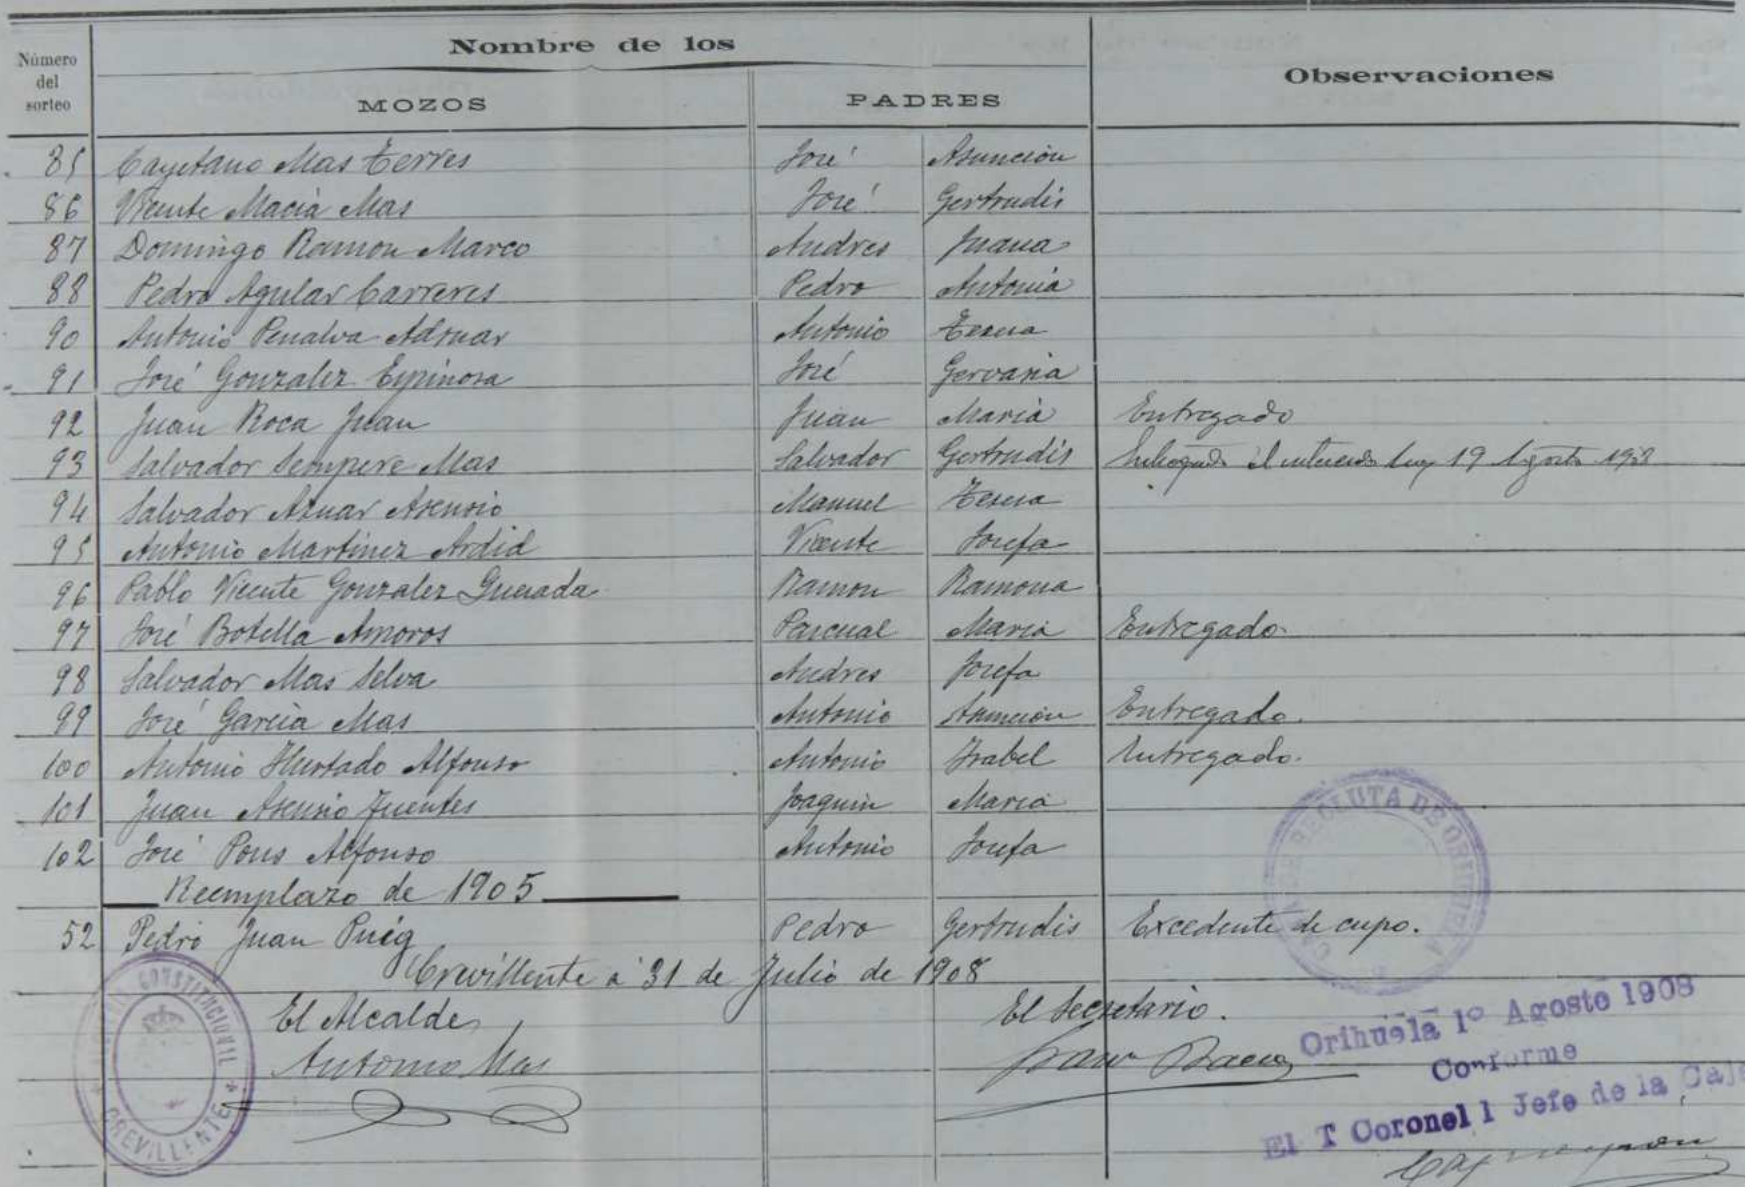 Número del sorteo
Nombre de los
MOZOS
PADRES
Observaciones
85 Cayetano Mas Torres José Asunción
86 Vicente Maciá Mas José Gertrudis
87 Domingo Ramon Marco Andres Juana
88 Pedro Agular Carreres Pedro Antonia
90 Antonio Penalva Adsuar Antonio Teresa
91 José Gonzalez Espinosa José Gervasia
92 Juan Roca Juan Juan Maria Entregado
93 Salvador Sempere Mas Salvador Gertrudis 19 Agosto 1908
94 Salvador Aznar Asensio Manuel Teresa
95 Antonio Martinez Ardid Vicente Josefa
96 Pablo Vicente Gonzalez Quesada Ramon Ramona
97 José Botella Amoros Pascual Maria Entregado
98 Salvador Mas Selva Andres Josefa
99 José Garcia Mas Antonio Asunción Entregado.
100 Antonio Hurtado Alfonso Antonio Isabel Entregado.
101 Juan Asensio Fuentes Joaquin Maria
102 José Pons Alfonso Antonio Josefa
Reemplazo de 1905
52 Pedro Juan Puig Pedro Gertrudis Excedente de cupo.
Crevillente á 31 de Julio de 1908
El Alcalde, El Secretario.
Antonio Mas
CONSTITUCIONAL
CREVILLENTE
CAJA DE RECLUTA DE ORIHUELA
Orihuela 1º Agosto 1908
Conforme
El T Coronel 1 Jefe de la Caja